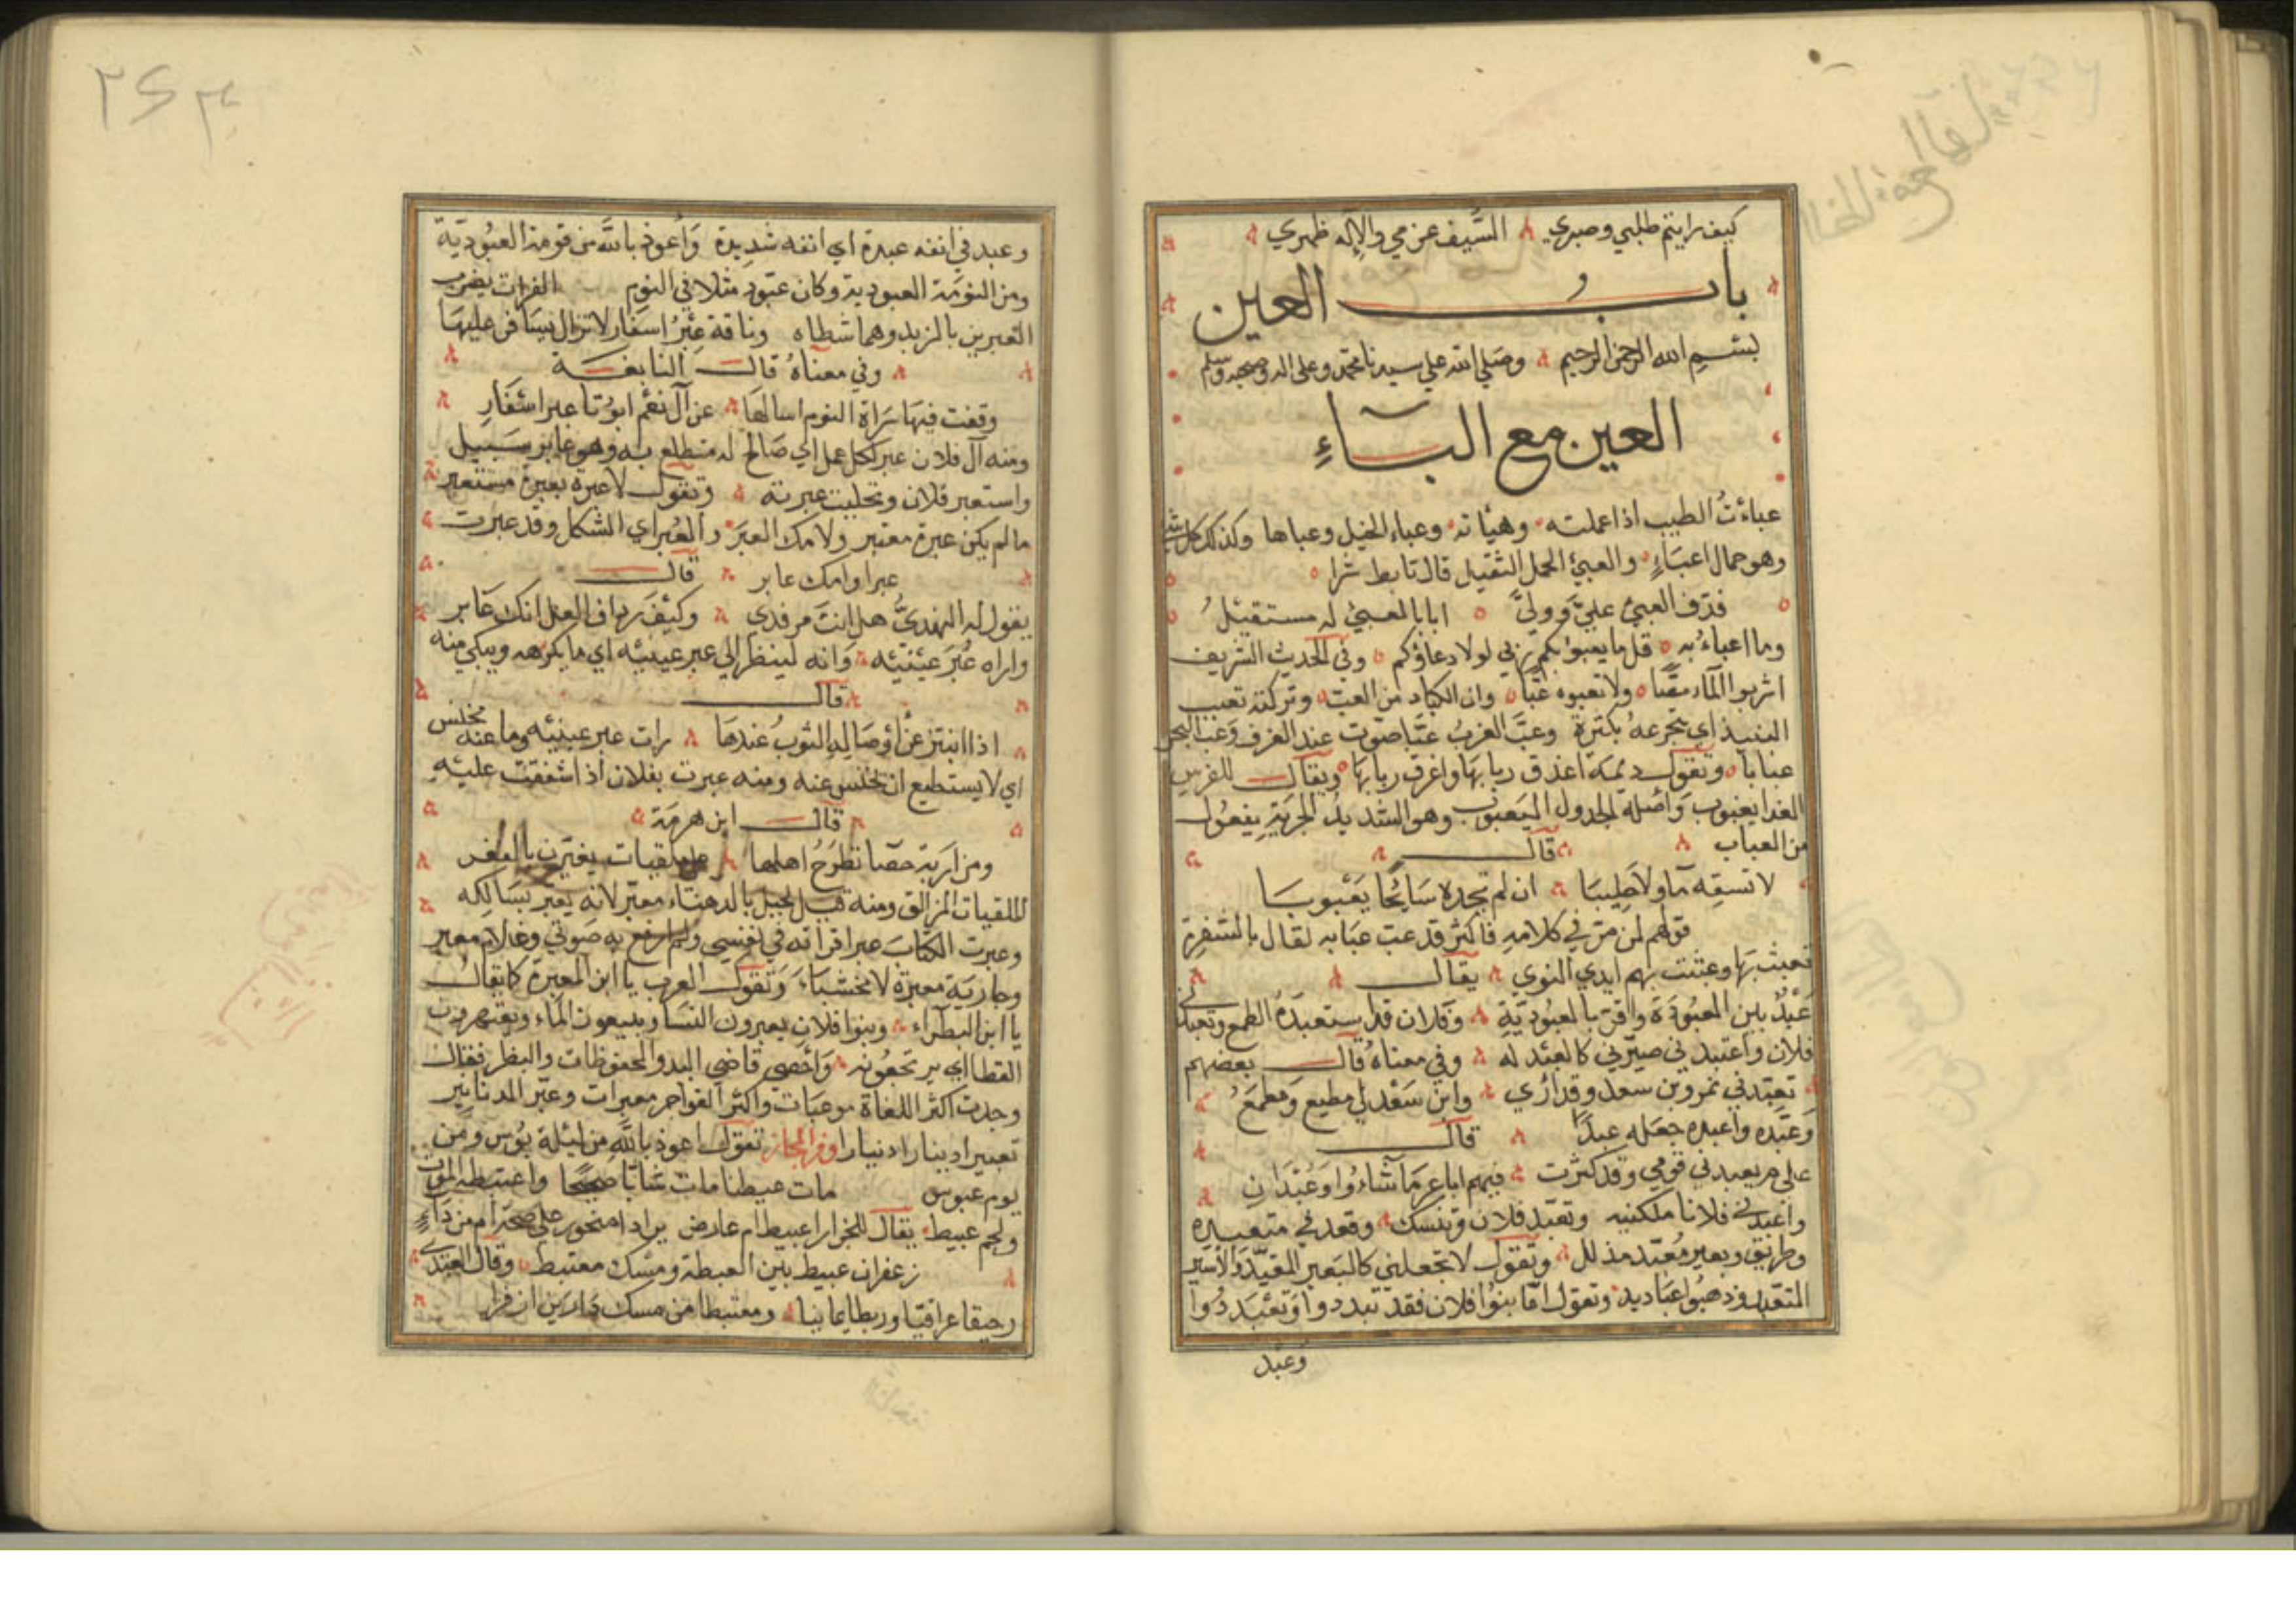 كيف رايتم طلبي وصبري السَّيف عزمي والإله ظهري
باب العين
بسم الله الرحمن الرحيم وصلي الله علي سيدنا محمد وعلى اله وصحبه وسلم
العين مع الباءِ
عباءتُ الطيب اذا عملته وهيأته وعباء الخيل وعباها وكذلك كل شي
وهو حمال اعباءٍ والعبئ الحمل الثقيل قال تابط شرا
قذف العبئ عليَّ وولىَّ انا بالعبئ له مستقيلُ
وما اعباءُ به قل ما يعبوا بكم ربي لولا دعاؤكم وفي الحديث الشريف
اشربوا الماء مصّا ولا تعبوه عبّا وان الكباد من العبّ وتركته تعبب
النبيذ اي يتجرعهُ بكثرة وعبَّ الغربُ عبّا صوت عند الغرف وعب البحر
عبابا وتقول ديمة اغذق ربابها واغرق ربابها ويقال للفرس
العدا يعبوب واصله الجدول اليعبوب وهو الشديد الجرية يفعول
من العباب قال
لا تسقِه ماً ولا حليبَا ان لم تجده سَابحًا يَعْبوبَا
قولهم لمن مرّ في كلامهِ فاكثر قد عب عبَابه لقال بالشفرة
تعبث بها وعبثت بهم ايدي النوي يقال
عَبْدٌ بين العبُودَة واقرّ بالعبُوديّةِ وفلان قد استعبدَهُ الطمع وتعبدني
فلان واعتبدني صيرّني كالعبْد له وفي معناهُ قال بعضهم
تعبّدني نمر وبن سعد وقد اري وابن سَعْد لي مطيع وَمطمَعُ
وَعبّده واعبده جعَله عبدًا قال
على م يعبدني قومي وقد كثرت فيهم اباعر مَا شاءُوا وَعُبْدَانِ
واعبدني فلانا ملكنيه وتعبّد فلان وتنسك وقعد في متعبده
وطريق وبعير مُعبّد مذلل وتقول لا تجعلني كالبعير المعبّد والاسير
المتعبد وذهبُوا عبَاديد وتقول امّا بنوا فلان فقد تبددوا وتعَبَددُوا
وعبد
وعبد في انفه عبدة اي انفه شديدة وَأعوذ بالله من قومة العبُوديّة
ومن النومَة العبوديّة وكان عبّود مثلا في النوم الفرات يضرب
العبرين بالزبد وهما شطاه وناقة عبْرُ اسفار لا تزال يسَافر عليهَا
وفي معناهُ قال النابغة
وقفت فيهَا سَرَاة اليوم اسالهَا عن آل نعْم امُونا عبر اسْفَارِ
ومنه آل فلان عبر لكل عمل اي صَالح له مضطلع به وهو عابر سَبيل
واستعبر فلان وتحلبت عبرته وتقول لا عبرة بعبرة مستعبر
ما لم يكن عبرة معتبر ولامك العبَر والعُبر اي الثكل وقد عبرت
عبرا وامك عابر قال
يقول له النهديُّ هل انتَ مردفي وكيْفَ رداف الفل امّك عَابر
واراه عُبَر عيْنيْه وَانه لينظر الي عبر عينيه اي ما يكرهه ويبكي منه
قال
اذا ابتز عَنْ أوصَاله الثوبُ عندهَا رات عبر عينيه وما عنه مخلس
اي لا يستطيع ان تخلس عنه ومنه عبرت بفلان اذا اشفقت عليْه
قال ابن هرمَة
ومن ازمة حصّا تطرحُ اهلها على ملقيات يعبرن بالغفر
الملقيات المزالق ومنه قيل لجبل بالدهناء معبر لانه يعبر بسَالكه
وعبرت الكتابَ عبرا قراته في نفسي ولم ارفع به صَوتي وغلام معبر
وجاريَة معبرة لا تخشباءَ وَتقول العرب يا ابن المعبرة كما يقالُ
يا ابن البظراء وبنوا فلان يعبرون النسَا ويبيعون الماءَ ويعتصرون
العطا اي يرتجعُونه وَاحصي قاضي البدو المحفوظات والبظر فقال
وجدت اكثر اللغاة موعبَات واكثر الفواجر معبرات وعبّر الدنانير
تعبيرا دينارا دينارا ومن المجاز تقول اعوذ باللَّه من ليلة بُوس ومن
يوم عبوس مات عبطنا مات شابّا صحيحًا واعتبطه الموت
ولحم عبيط يقال للجزار اعبيط ام عارض يراد امنحور على صحة ام من دَاءٍ
زعفران عبيط بين العبطة ومسْك معتبط وقال العبدي
رحيقا عراقيّا وريطا يمانيا ومعتبطا من مسك دَارَين اذفرا